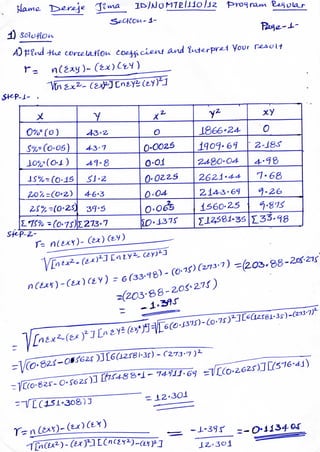 Name Dereje Jima ID/NO MTR/110/12 Program Regular
Section-1-
Page-1-
1) Solution
A) Find the correlation coefficient and Interpret Your result
r = n(Σxy) - (Σx)(ΣY)
√[nΣx²- (Σx)²][nΣY²-(ΣY)²]
Step-1-
X Y x² Y² XY
0%=(0) 43.2 0 1866.24 0
5%=(0.05) 43.7 0.0025 1909.69 2.185
10%=(0.1) 49.8 0.01 2480.04 4.98
15%=(0.15) 51.2 0.0225 2621.44 7.68
20%=(0.2) 46.3 0.04 2143.69 9.26
25%=(0.25) 39.5 0.063 1560.25 9.875
Σ75%=(0.75) Σ273.7 Σ0.1375 Σ12581.35 Σ33.98
Step-2-
r= n(Σxy) - (Σx)(ΣY)
√[nΣx²- (Σx)²][nΣY²- (ΣY)²]
n(Σxy)-(Σx)(ΣY) = 6(33.98) - (0.75)(273.7) =(203.88-205.275)
=(203.88-205.275)
= -1.395
=√[nΣx²-(Σx)²][nΣY²-(ΣY)²]=√[6(0.1375)-(0.75)²][6(12581.35)-(273.7)²
=√(0.825-0.5625)][6(12581.35) - (273.7)²
=√[(0.825-0.5625)][75488.1- 74911.69 =√[(0.2625)][(576.41)
=√[(151.308)] = 12.301
r= n(Σxy)- (Σx)(ΣY) = -1.395 = -0.113405
√[n(Σx²)-(Σx)²][n(ΣY²)-(ΣY)² 12.301